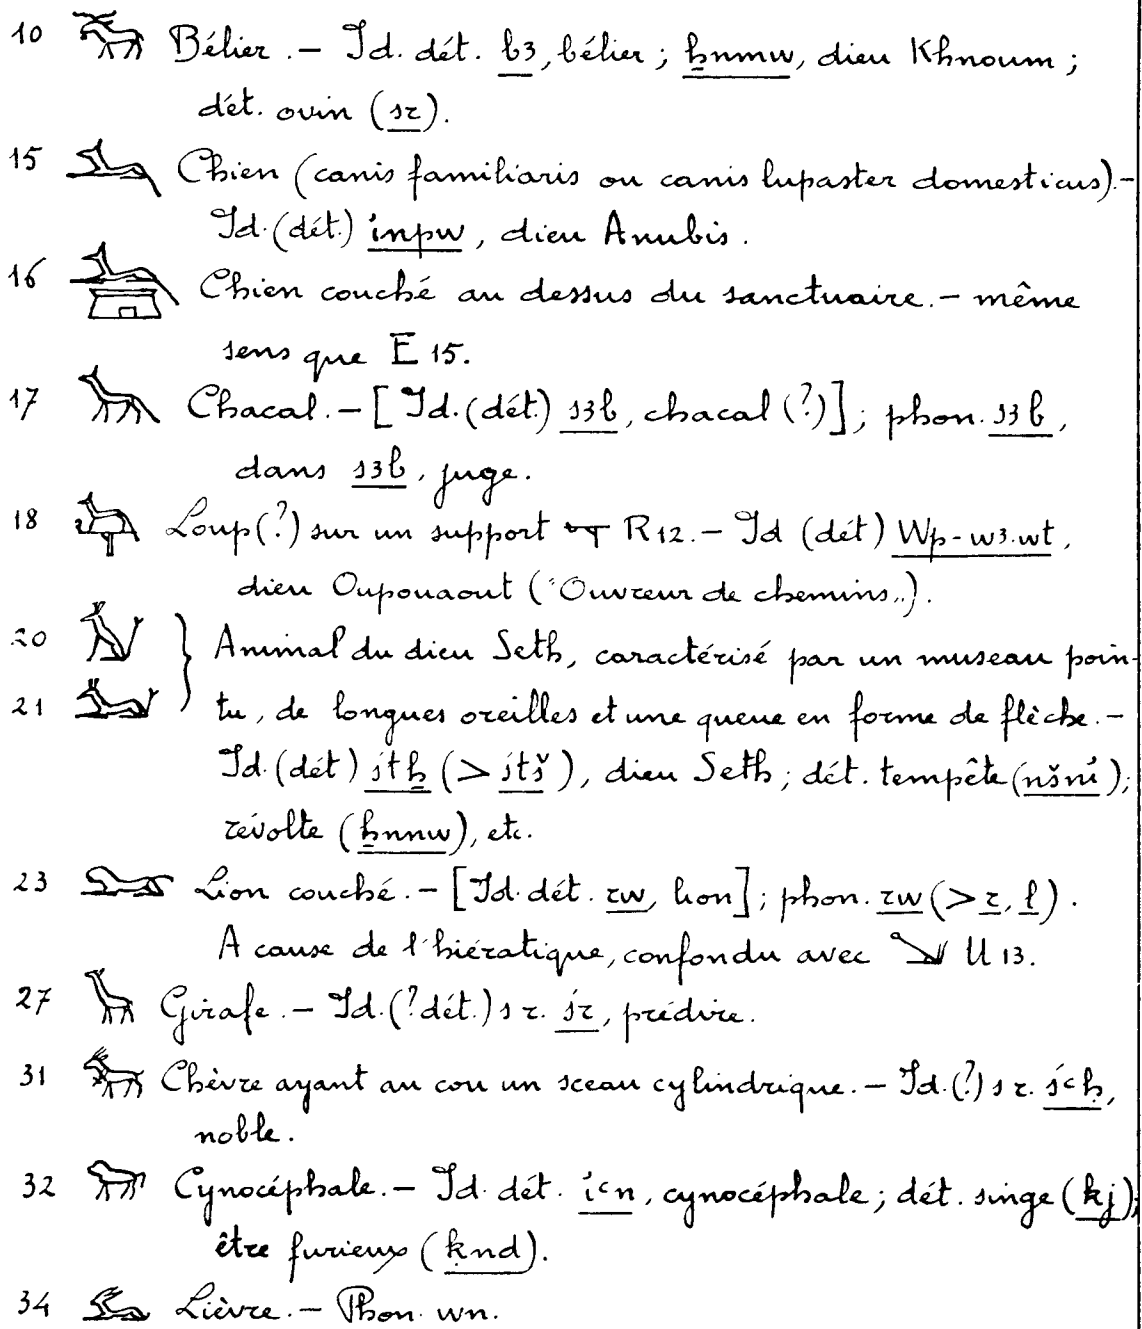 10 Bélier. – Id. dét. b3, bélier ; ẖnmw, dieu Khnoum ;
dét. ovin (sr).
15 Chien (canis familiaris ou canis lupaster domesticus). –
Id. (dét.) inpw, dieu Anubis.
16 Chien couché au dessus du sanctuaire. – même
sens que E 15.
17 Chacal. – [Id. (dét.) s3b, chacal (?)] ; phon. s3b,
dans s3b, juge.
18 Loup (?) sur un support R12. – Id (dét) Wp-w3.wt,
dieu Oupouaout ("Ouvreur de chemins").
20 Animal du dieu Seth, caractérisé par un museau poin-
21 tu, de longues oreilles et une queue en forme de flèche. –
Id. (dét) śtẖ (> śtš), dieu Seth ; dét. tempête (nšnỉ) ;
révolte (ẖnnw), etc.
23 Lion couché. – [Id. dét. rw, lion] ; phon. rw (> r, l).
A cause de l'hiératique, confondu avec U 13.
27 Girafe. – Id. (? dét.) s r. śr, prédire.
31 Chèvre ayant au cou un sceau cylindrique. – Id. (?) s r. śꜥḥ,
noble.
32 Cynocéphale. – Id. dét. ỉꜥn, cynocéphale ; dét. singe (kj) ;
être furieux (ḳnd).
34 Lièvre. – Phon. wn.